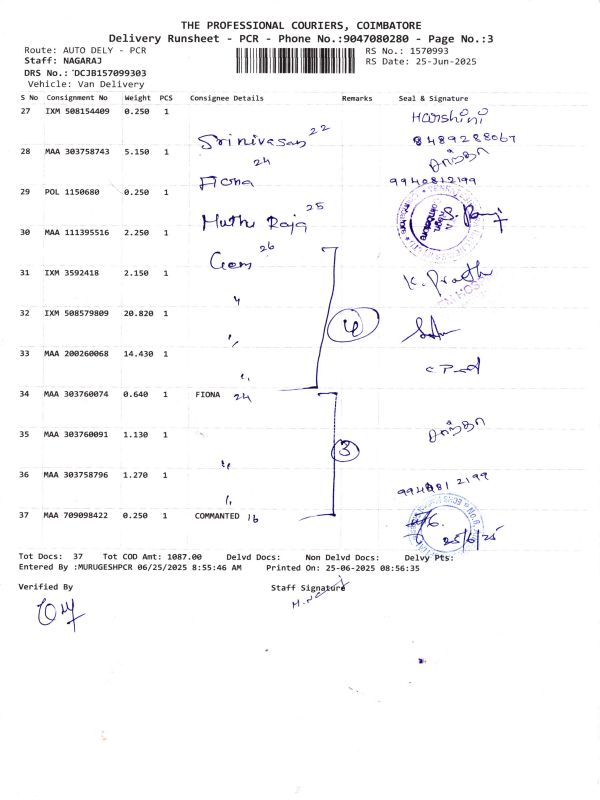 THE PROFESSIONAL COURIERS, COIMBATORE
Delivery Runsheet - PCR - Phone No.:9047080280 - Page No.:3
Route: AUTO DELY - PCR
RS No.: 1570993
Staff: NAGARAJ
RS Date: 25-Jun-2025
DRS No.: DCJB157099303
Vehicle: Van Delivery
S No Consignment No Weight PCS Consignee Details Remarks Seal & Signature
27 IXM 508154409 0.250 1 Harshini
Srinivasan 22 8489288067
28 MAA 303758743 5.150 1 சங்கீதா
Fiona 24 9940812199
29 POL 1150680 0.250 1
Muthu Raja 25
30 MAA 111395516 2.250 1
Gem 26
31 IXM 3592418 2.150 1 K. Prath
〃
32 IXM 508579809 20.820 1
〃 4
33 MAA 200260068 14.430 1
〃
34 MAA 303760074 0.640 1 FIONA 24
35 MAA 303760091 1.130 1
〃 3
36 MAA 303758796 1.270 1
〃 9940812199
37 MAA 709098422 0.250 1 COMMANTED 16
25/6/25
Tot Docs: 37 Tot COD Amt: 1087.00 Delvd Docs: Non Delvd Docs: Delvy Pts:
Entered By :MURUGESHPCR 06/25/2025 8:55:46 AM Printed On: 25-06-2025 08:56:35
Verified By Staff Signature